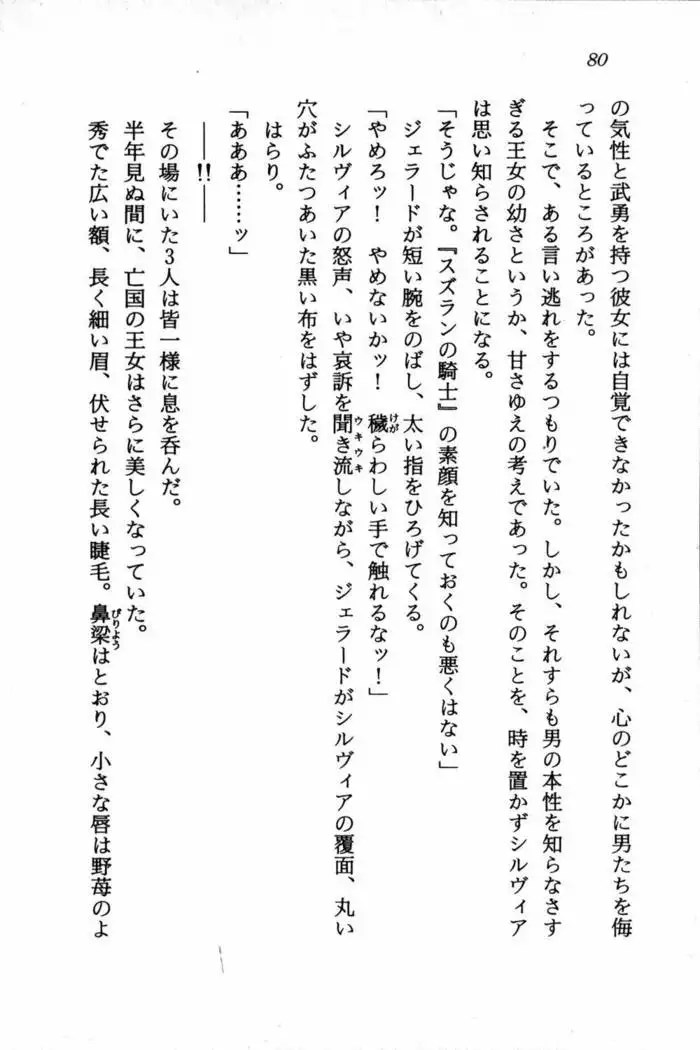 80
の気性と武勇を持つ彼女には自覚できなかったかもしれないが、心のどこかに男たちを侮
っているところがあった。
そこで、ある言い逃れをするつもりでいた。しかし、それすらも男の本性を知らなさす
ぎる王女の幼さというか、甘さゆえの考えであった。そのことを、時を置かずシルヴィア
は思い知らされることになる。
「そうじゃな。『スズランの騎士』の素顔を知っておくのも悪くはない」
ジェラードが短い腕をのばし、太い指をひろげてくる。
「やめろッ！　やめないかッ！　穢らわしい手で触れるなッ！」
シルヴィアの怒声、いや哀訴を聞き流しながら、ジェラードがシルヴィアの覆面、丸い
穴がふたつあいた黒い布をはずした。
はらり。
「あああ……ッ」
――!!――
その場にいた3人は皆一様に息を呑んだ。
半年見ぬ間に、亡国の王女はさらに美しくなっていた。
秀でた広い額、長く細い眉、伏せられた長い睫毛。鼻梁はとおり、小さな唇は野苺のよ